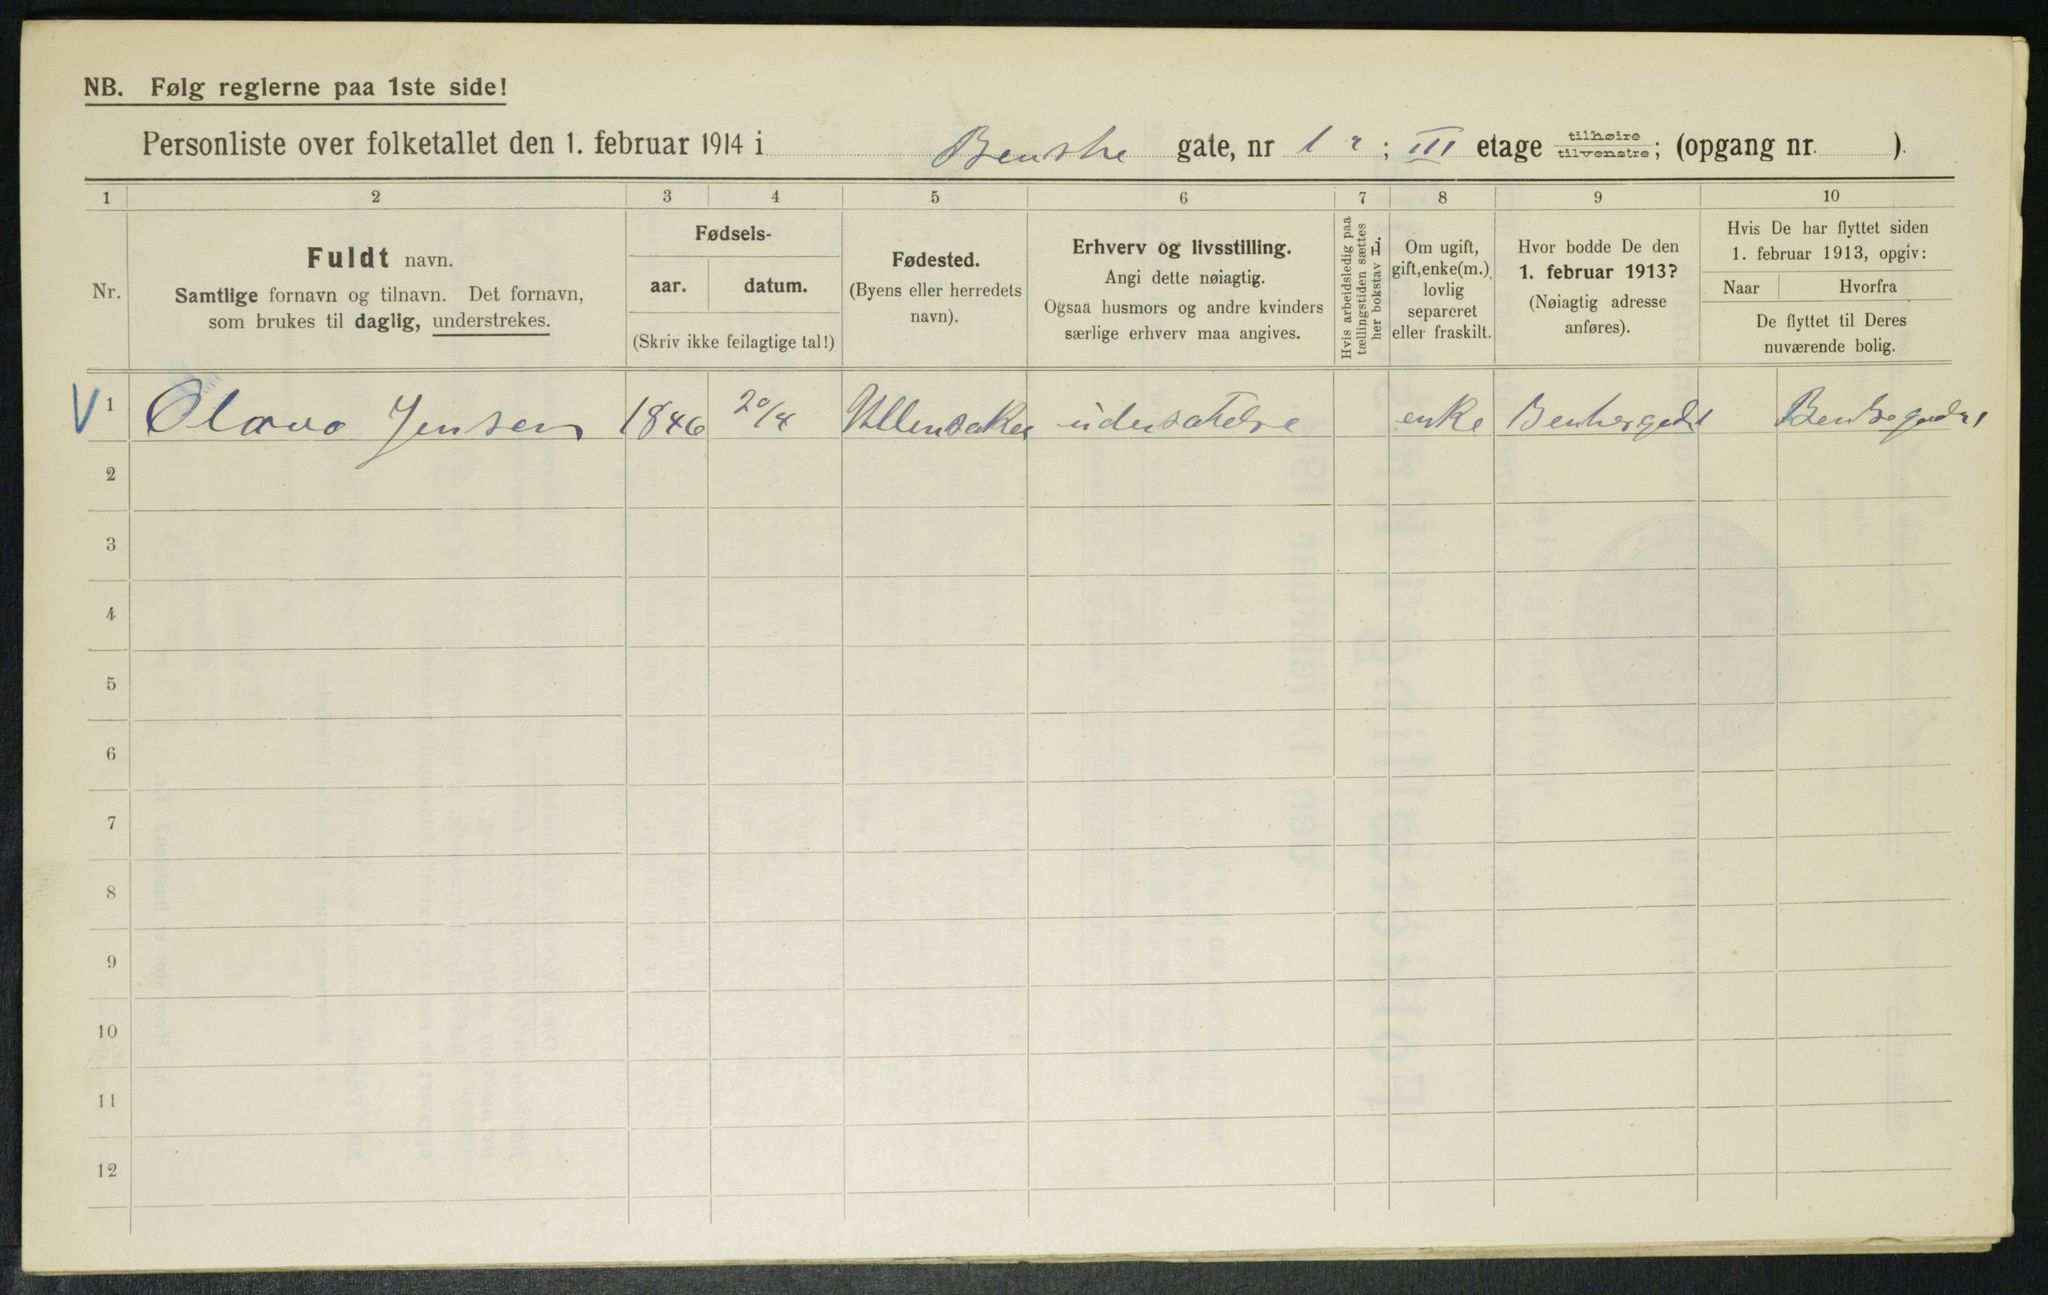 NB. Følg reglerne paa 1ste side!
Personliste over folketallet den 1. februar 1914 i Benske gate, nr 1 ; III etage tilhøire tilvenstre; (opgang nr. ).
1 2 3 4 5 6 7 8 9 10
Nr.
Fuldt navn.
Samtlige fornavn og tilnavn. Det fornavn,
som brukes til daglig, understrekes.
Fødsels-
aar. datum.
(Skriv ikke feilagtige tal!)
Fødested.
(Byens eller herredets
navn).
Erhverv og livsstilling.
Angi dette nøiagtig.
Ogsaa husmors og andre kvinders
særlige erhverv maa angives.
Hvis arbeidsledig paa
tællingstiden sættes
her bokstav L.
Om ugift,
gift, enke(m.),
lovlig
separeret
eller fraskilt.
Hvor bodde De den
1. februar 1913?
(Nøiagtig adresse
anføres).
Hvis De har flyttet siden
1. februar 1913, opgiv:
Naar Hvorfra
De flyttet til Deres
nuværende bolig.
V 1 Olava Jensen 1846 20/4 Ullensaker enke
2
3
4
5
6
7
8
9
10
11
12